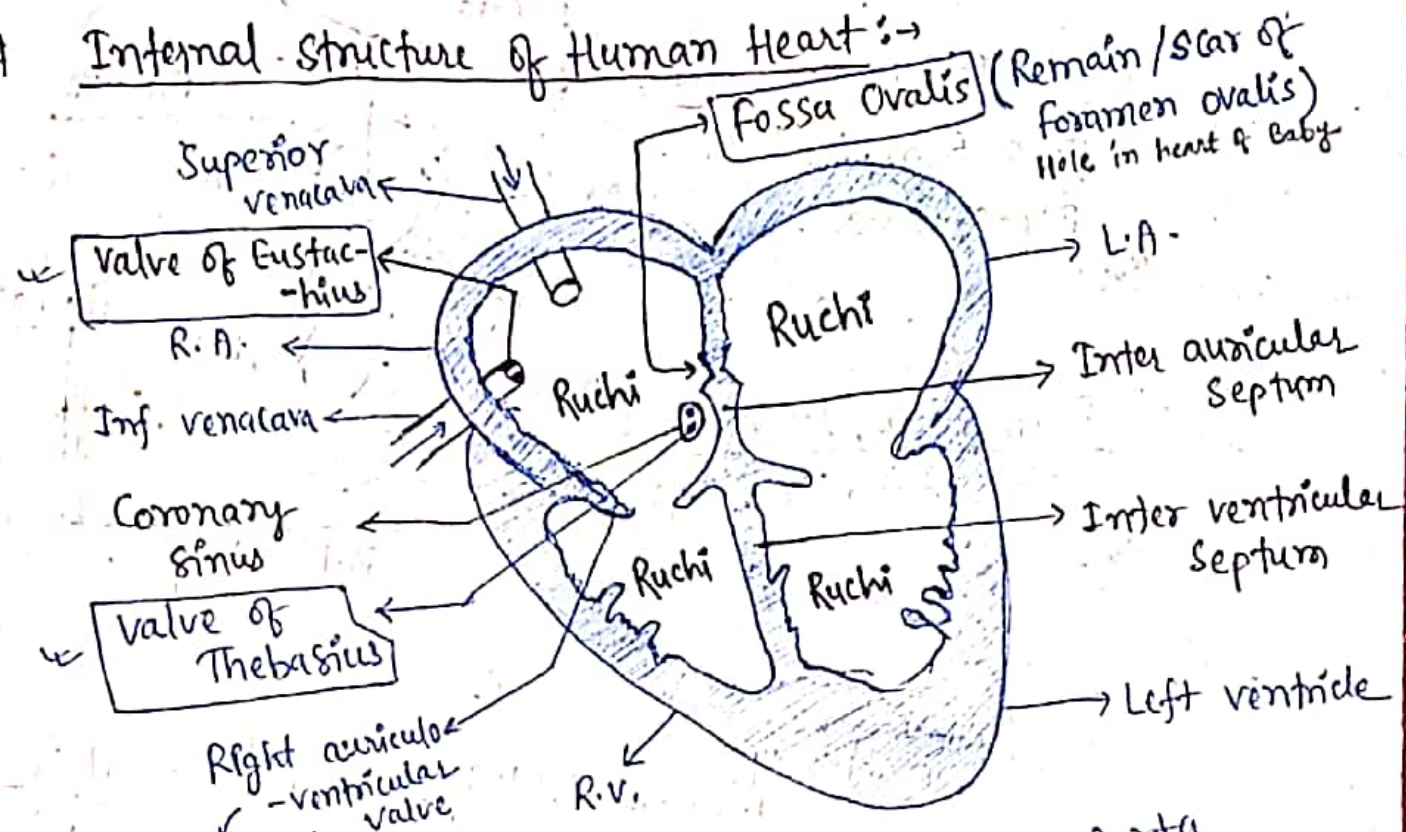 Internal Structure of Human Heart :→
Fossa Ovalis (Remain / Scar of
foramen ovalis)
Hole in heart of Baby
Superior
venacava
Valve of Eustac-
-hius
R.A.
Inf. venacava
Coronary
Sinus
Valve of
Thebasius
Right auriculo
-ventricular
valve
R.V.
Ruchi
Ruchi
Ruchi
Ruchi
L.A.
Inter auricular
Septum
Inter ventricular
Septum
Left ventricle